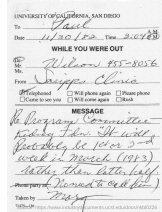 UNIVERSITY OF CALIFORNIA, SAN DIEGO
To Paul
Date 11/20/82 Time 2:09
WHILE YOU WERE OUT
Mr. Wilson 455-8056
From Scripps Clinic
Telephoned Will phone again Please phone
Came to see you Will come again Rush
MESSAGE
Re Program Committee
Friday Feb. It will
probably be 1st or 2nd
week in March (1983)
rather than later part
Phone party at (Normed to call him)
Taken by Mary